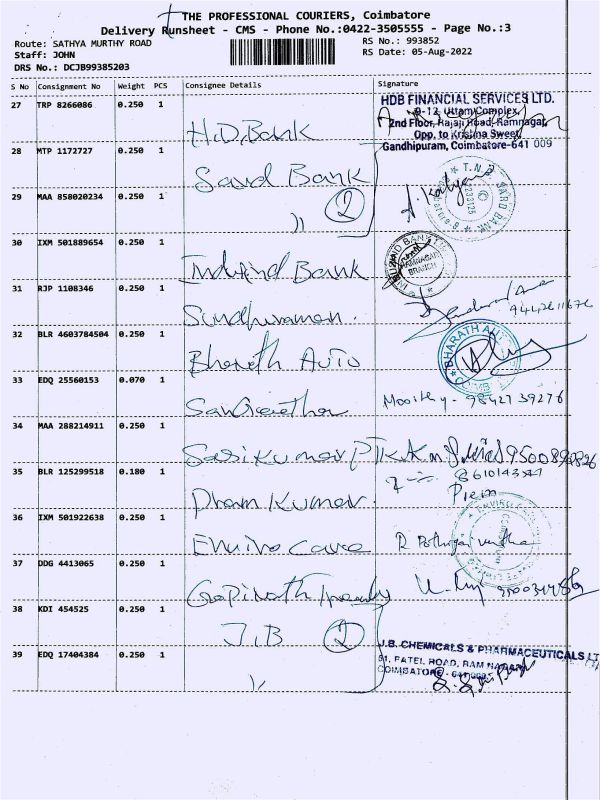 THE PROFESSIONAL COURIERS, Coimbatore
Delivery Runsheet - CMS - Phone No.:0422-3505555 - Page No.:3
Route: SATHYA MURTHY ROAD
RS No.: 993852
Staff: JOHN
RS Date: 05-Aug-2022
DRS No.: DCJB99385203
S No Consignment No Weight PCS Consignee Details Signature
27 TRP 8266086 0.250 1 H.D. Bank
HDB FINANCIAL SERVICES LTD.
9-12, Uttam Complex,
2nd Floor, Rajaji Road, Ramnagar,
Opp. to Krishna Sweet,
Gandhipuram, Coimbatore-641 009
28 MTP 1172727 0.250 1 Sard Bank
29 MAA 858020234 0.250 1 " 2 A. Kalyan
30 IXM 501889654 0.250 1 Indusind Bank
BRANCH
31 RJP 1108346 0.250 1
32 BLR 4603784504 0.250 1 Bharath Auto
BHARATH AU
33 EDQ 25560153 0.070 1 Sangeetha Moorthy - 9842739276
34 MAA 288214911 0.250 1 Sasikumar
35 BLR 125299518 0.180 1 Prem Kumar
Prem
36 IXM 501922638 0.250 1 Enviro Care
37 DDG 4413065 0.250 1 Gopinath
38 KDI 454525 0.250 1 J.B 2
39 EDQ 17404384 0.250 1 "
J.B. CHEMICALS & PHARMACEUTICALS LT
51, PATEL ROAD, RAM NAGAR,
COIMBATORE - 641009